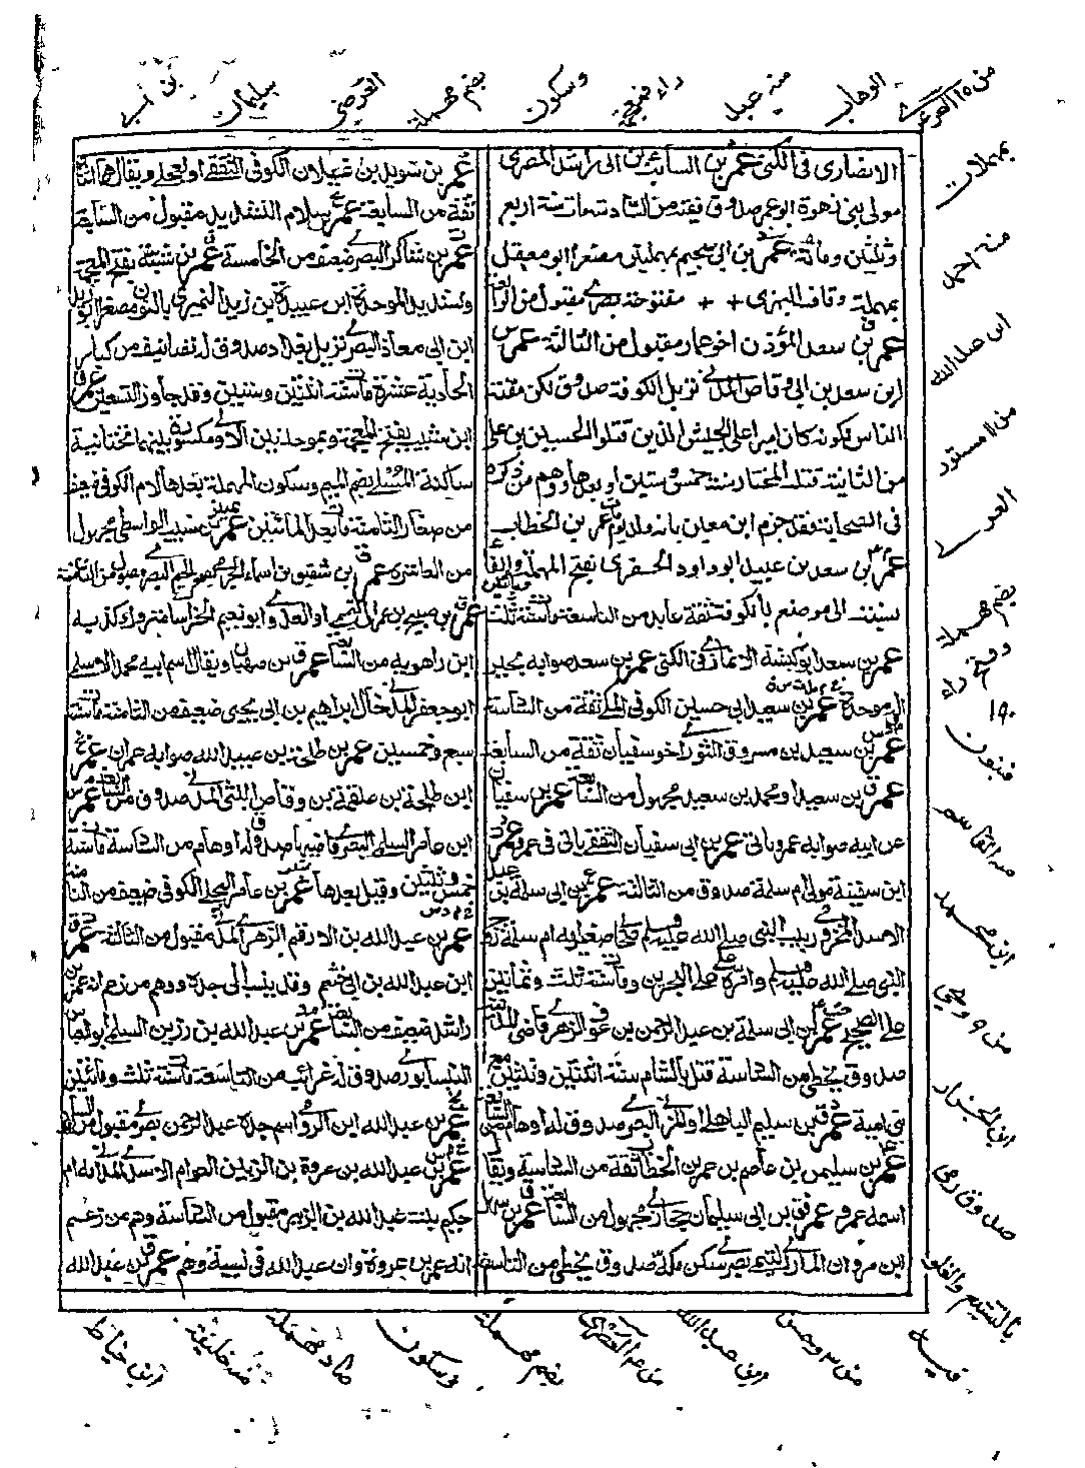 الانصاري في الكنى عمر بن السائب بن ابي راشد المصري
مولى بني زهرة ابو عمر صدوق فقيه من السادسة مات سنة اربع
وثلثين ومائة عمر بن ابي سحيم بمهملتين مصغرا ابو معقل
بمهملة وقاف البهزي + + مفتوحة بصري مقبول من الرابعة
عمر بن سعد المؤذن اخو عمار مقبول من الثالثة عمر
ابن سعد بن ابي وقاص المدني نزيل الكوفة صدوق لكن مقته
الناس لكونه كان اميرا على الجيش الذين قتلوا الحسين بن علي
من الثانية قتله المختار سنة خمس وستين او بعدها ووهم من ذكره
في الصحابة فقد جزم ابن معين بانه ولد يوم مات عمر بن الخطاب
عمر بن سعد بن عبيد ابو داود الحفري بفتح المهملة والفاء
نسبة الى موضع بالكوفة ثقة عابد من التاسعة مات سنة ثلث
عمر بن سعد ابو كبشة الانماري في الكنى عمر بن سعد صوابه بجير
الموحدة عمر بن سعيد ابي حسين الكوفي المكي ثقة من السادسة
عمر بن سعيد بن مسروق الثوري اخو سفيان ثقة من السابعة
عمر بن سعيد او محمد بن سعيد مجهول من السابعة عمر بن سفيان
عن ابيه صوابه عمرو ياتي عمر بن ابي سفيان الثقفي ياتي في عمرو عمر
ابن سفينة مولى ام سلمة صدوق من الثالثة عمر بن ابي سلمة بن
الاسد المخزومي ربيب النبي صلى الله عليه وسلم صحابي صغير امه ام سلمة زوج
النبي صلى الله عليه وسلم وامره علي على البحرين ومات سنة ثلث وثمانين
على الصحيح عمر بن ابي سلمة بن عبد الرحمن بن عوف الزهري قاضي المدينة
صدوق يخطي من السادسة قتل بالشام سنة اثنتين وثلثين مع
بني امية عمر بن سليم الباهلي او المزني البصري صدوق له اوهام من السابعة
عمر بن سليمن بن عاصم بن عمر بن الخطاب ثقة من السادسة ويقال
اسمه عمرو عمر بن ابي سليمان حجازي مجهول من السابعة عمر بن سهل
ابن مروان المازني التيمي بصري سكن مكة صدوق يخطي من التاسعة
عمر بن سويد بن غيلان الكوفي الثقفي او العجلي ويقال هما اثنان
ثقة من السابعة عمر بن سلام التشديد مقبول من السابعة
عمر بن شاكر البصري ضعيف من الخامسة عمر بن شبة بفتح المعجمة
وتشديد الموحدة ابن عبيدة بن زيد النميري بالنون مصغرا ابو زيد
ابن ابي معاذ البصري نزيل بغداد صدوق له تصانيف من كبار
الحادية عشرة مات سنة اثنتين وستين وقد جاوز التسعين عمر
ابن شبيب بفتح المعجمة وبموحدتين الاولى مكسورة بينهما تحتانية
ساكنة المسلي بضم الميم وسكون المهملة بعدها لام الكوفي ضعيف
من صغار الثامنة مات بعد المائتين عمر بن شبيب الواسطي مجهول
من العاشرة عمر بن شقيق بن اسماء الجرمي بالجيم البصري مقبول من الثامنة
عمر بن صبيح بن عمران التميمي او العدوي ابو نعيم الخراساني متروك كذبه
ابن راهويه من السابعة عمر بن صهبان ويقال اسم ابيه محمد الاسلمي
ابو جعفر المدني خال ابراهيم بن ابي يحيى ضعيف من الثامنة مات سنة
سبع وخمسين عمر بن طلحة بن عبيد الله صوابه عمران عمر
ابن طلحة بن علقمة بن وقاص الليثي المدني صدوق من السابعة عمر
ابن عامر السلمي البصري قاضيها صدوق له اوهام من السادسة مات سنة
خمس وثلثين وقيل بعدها عمر بن عامر البجلي الكوفي ضعيف من الثامنة
عمر بن عبد الله بن الارقم الزهري المدني مقبول من الثالثة عمر
ابن عبد الله بن ابي خثعم وقد ينسب الى جده ووهم من زعم انه عمر بن
راشد ضعيف من السابعة عمر بن عبد الله بن رزين السلمي ابو العباس
النيسابوري صدوق له غرائب من التاسعة مات سنة ثلث ومائتين
عمر بن عبد الله ابن الرومي اسم جده عبد الرحمن بصري مقبول من
عمر بن عبد الله بن عروة بن الزبير بن العوام الاسدي المدني امه ام
حكيم بنت عبد الله بن الزبير مقبول من السادسة وهم من زعم
انه عمر بن عروة وان عبد الله في نسبه وهم عمر بن عبد الله
الوهاب
منه عبد
راء مفتوحة
وسكون
بضم مهملة
العرضي
سليمان
بمهملات
منه احمد
ابن عبد الله
من ۱۱ مستور
العدني
بضم مهملة
۱۹۰
فنون
منه القاسم
ابن محمد
من ۹ وحي
ابن الجزار
صدوق رمي
بالتشيع والغلو
فيه
من ۳ وحسن
ابن عبد الله
من ۳ العصري
بضم مهملة
وسكون
صاد مهملة
منه خليفة
ابن خياط